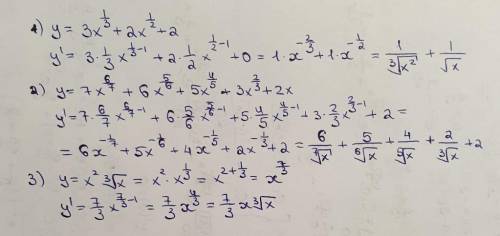 1) y = 3x^{1/3} + 2x^{1/2} + 2
y' = 3·1/3 x^{1/3-1} + 2·1/2 x^{1/2-1} + 0 = 1·x^{-2/3} + 1·x^{-1/2} = 1/∛x² + 1/√x
2) y = 7x^{6/7} + 6x^{5/6} + 5x^{4/5} + 3x^{2/3} + 2x
y' = 7·6/7 x^{6/7-1} + 6·5/6 x^{5/6-1} + 5·4/5 x^{4/5-1} + 3·2/3 x^{2/3-1} + 2 =
= 6x^{-1/7} + 5x^{-1/6} + 4x^{-1/5} + 2x^{-1/3} + 2 = 6/⁷√x + 5/⁶√x + 4/⁵√x + 2/∛x + 2
3) y = x² ∛x = x²·x^{1/3} = x^{2+1/3} = x^{7/3}
y' = 7/3 x^{7/3-1} = 7/3 x^{4/3} = 7/3 x ∛x